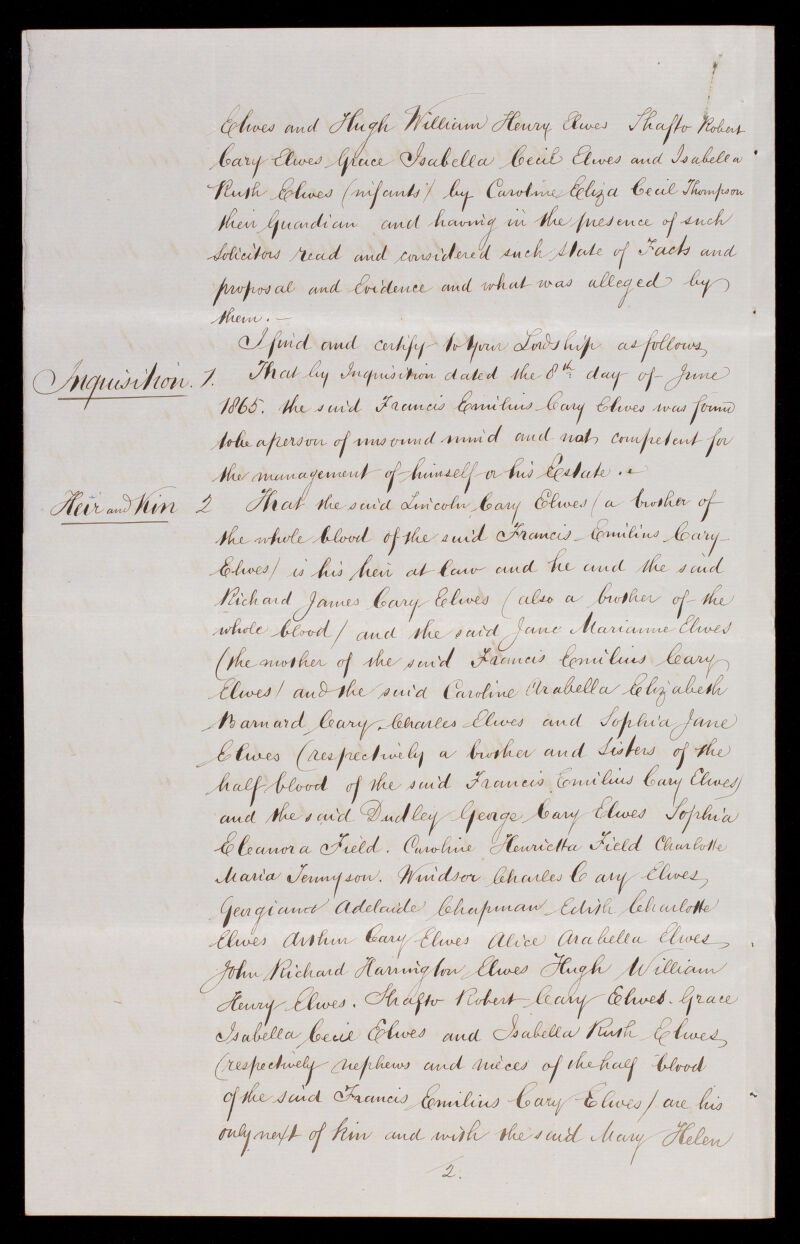 Elwes and Hugh William Henry Elwes Shafto Robert
Cary Elwes Grace Isabella Cecil Elwes and Isabella
Ruth Elwes (infants) by Caroline Eliza Cecil Thompson
their Guardian and having in the presence of such
Solicitors read and considered such state of Facts and
proposal and Evidence and what was alleged by
them. —
I find and certify to Your Lordship as follows,
Inquisition. 1. That by Inquisition dated the 8th day of June
1865. the said Francis Emilius Cary Elwes was found
to be a person of unsound mind and not competent for
the management of himself or his Estate.
Heir and Kin 2 That the said Lincoln Cary Elwes (a brother of
the whole blood of the said Francis Emilius Cary
Elwes) is his heir at law and he and the said
Richard James Cary Elwes (also a brother of the
whole blood) and the said Jane Marianne Elwes
(the mother of the said Francis Emilius Cary
Elwes) and the said Caroline Arabella Elizabeth
Barnard Cary Charles Elwes and Sophia Jane
Elwes (respectively a brother and Sisters of the
half blood of the said Francis Emilius Cary Elwes)
and the said Dudley George Cary Elwes Sophia
Eleanora Field. Caroline Henrietta Field Charlotte
Maria Tennyson. Windsor Charles Cary Elwes,
Georgiana Adelaide Chapman Edith Charlotte
Elwes Arthur Cary Elwes Alice Arabella Elwes,
John Richard Harrington Elwes Hugh William
Henry Elwes. Shafto Robert Cary Elwes. Grace
Isabella Cecil Elwes and Isabella Ruth Elwes,
(respectively nephews and nieces of the half blood
of the said Francis Emilius Cary Elwes) are his
only next of kin and with the said Mary Helen
2.